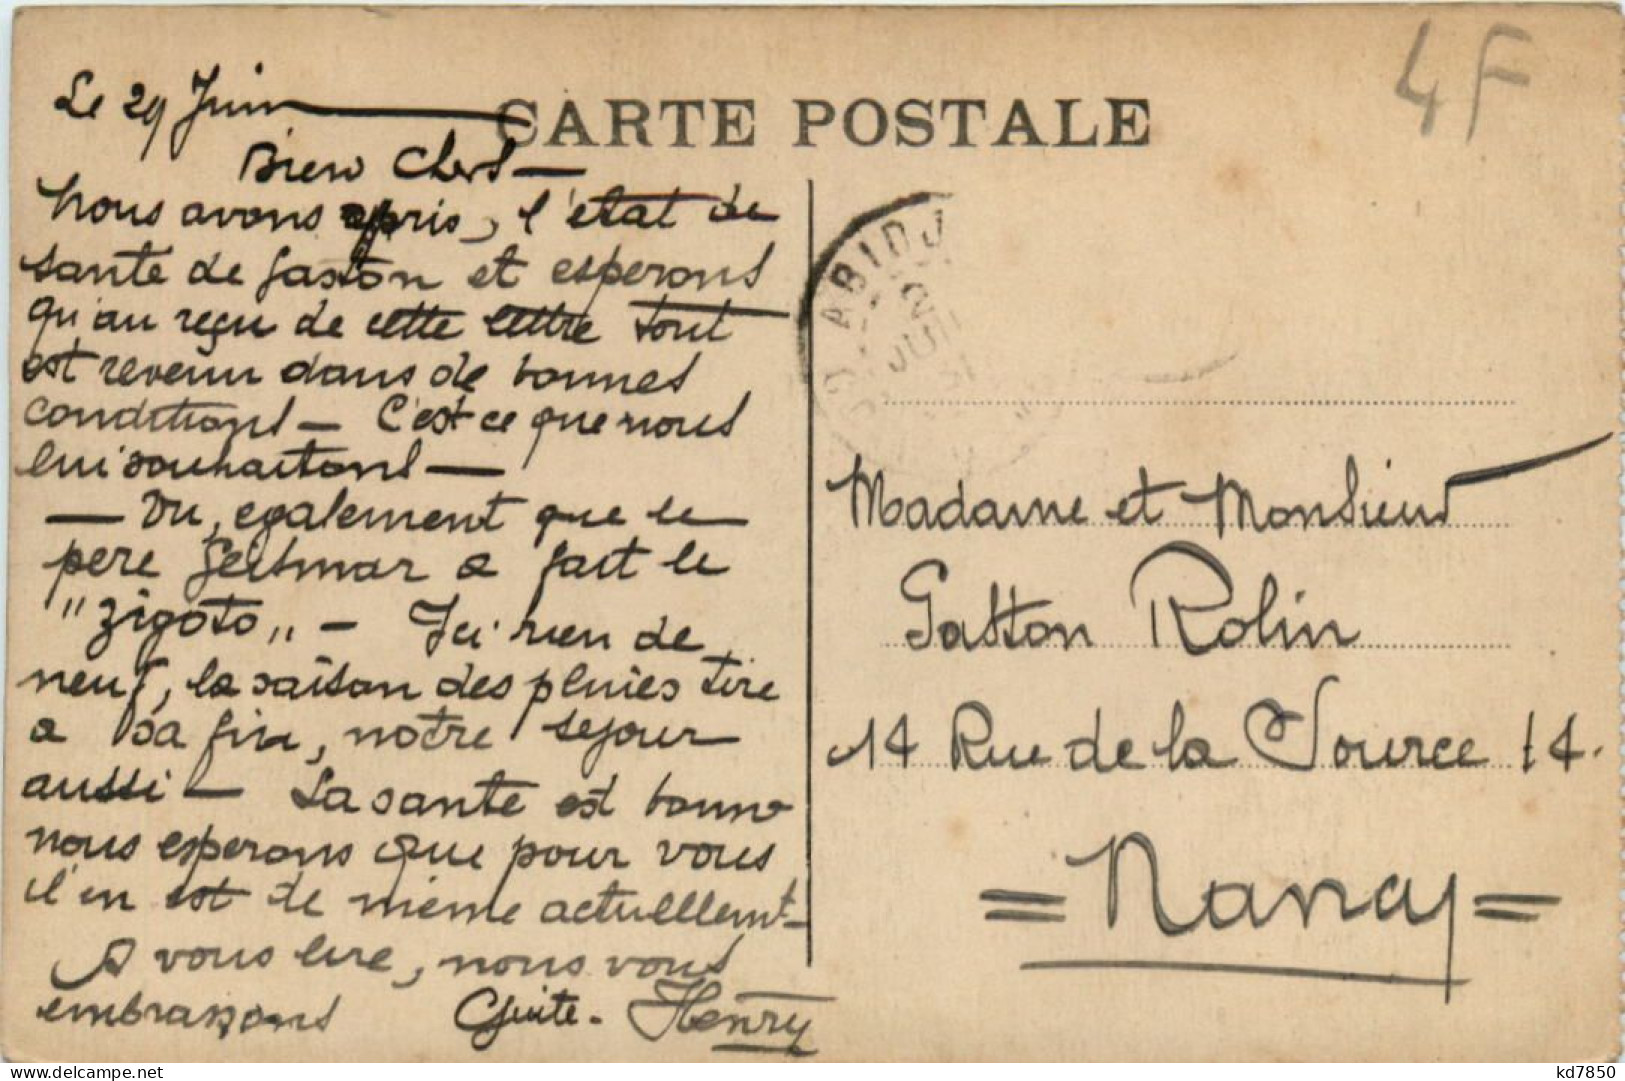 4F
CARTE POSTALE
Le 29 Juin
Bien Chers —
Nous avons appris, l'état de
sante de Gaston et esperons
qu'au reçu de cette lettre tout
est revenu dans de bonnes
conditions — C'est ce que nous
lui souhaitons —
— Vu, egalement que le
pere Geitmar a fait le
"Zigoto" — Ici rien de
neuf, la saison des pluies tire
a sa fin, notre sejour
aussi — La sante est bonne
nous esperons que pour vous
il en est de même actuellement —
A vous lire, nous vous
embrassons Guite - Henry
ABIDJ
2
JUI
31
Madame et Monsieur
Gaston Rolin
14 Rue de la Source 14.
= Nancy =
kd7850